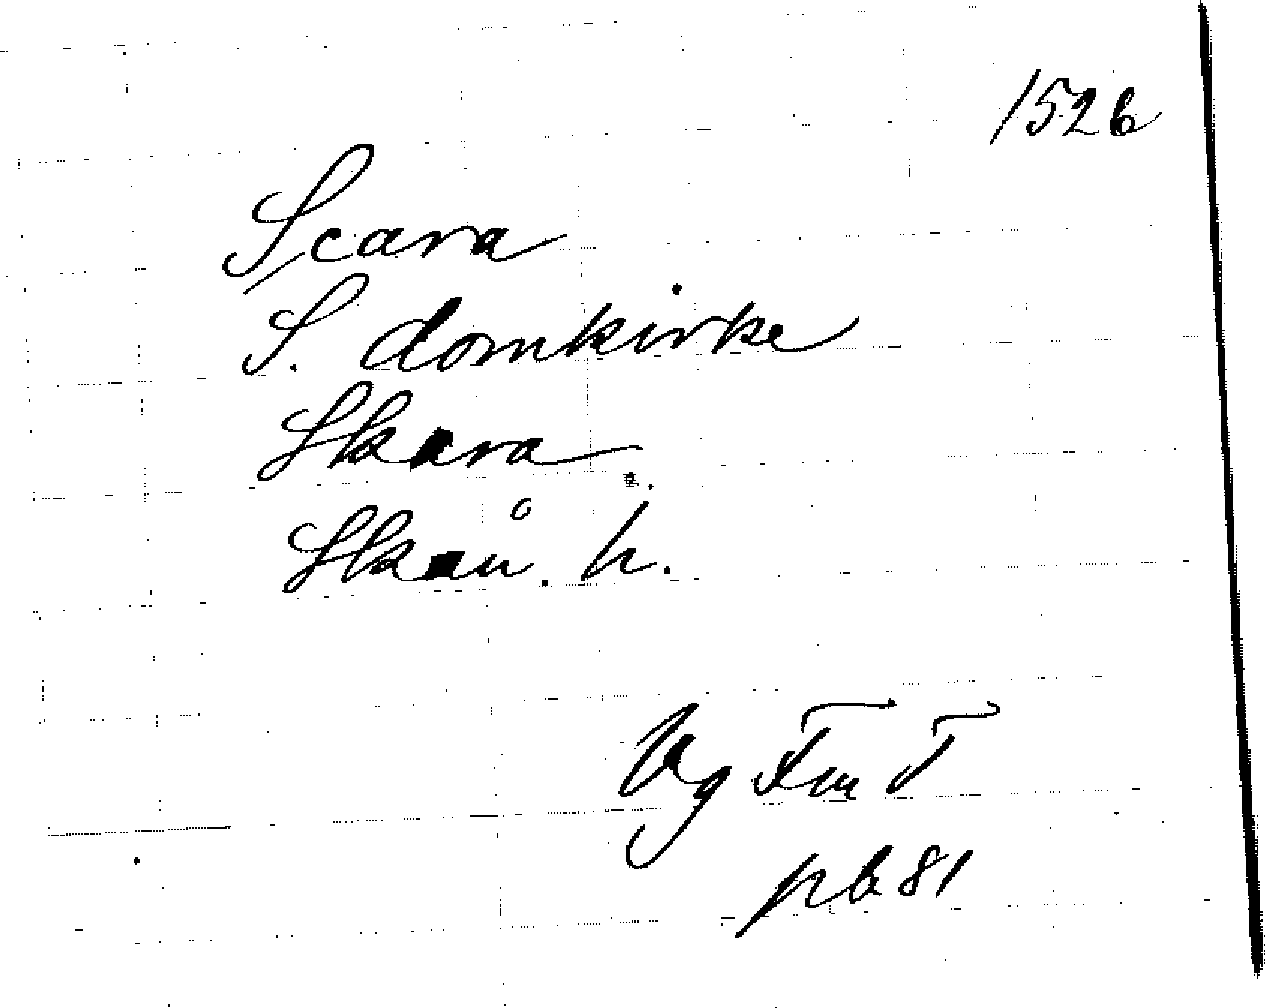 1526
Scara
S. domkirke
Skara
Skau. h.
Vg Fm T
pb 81